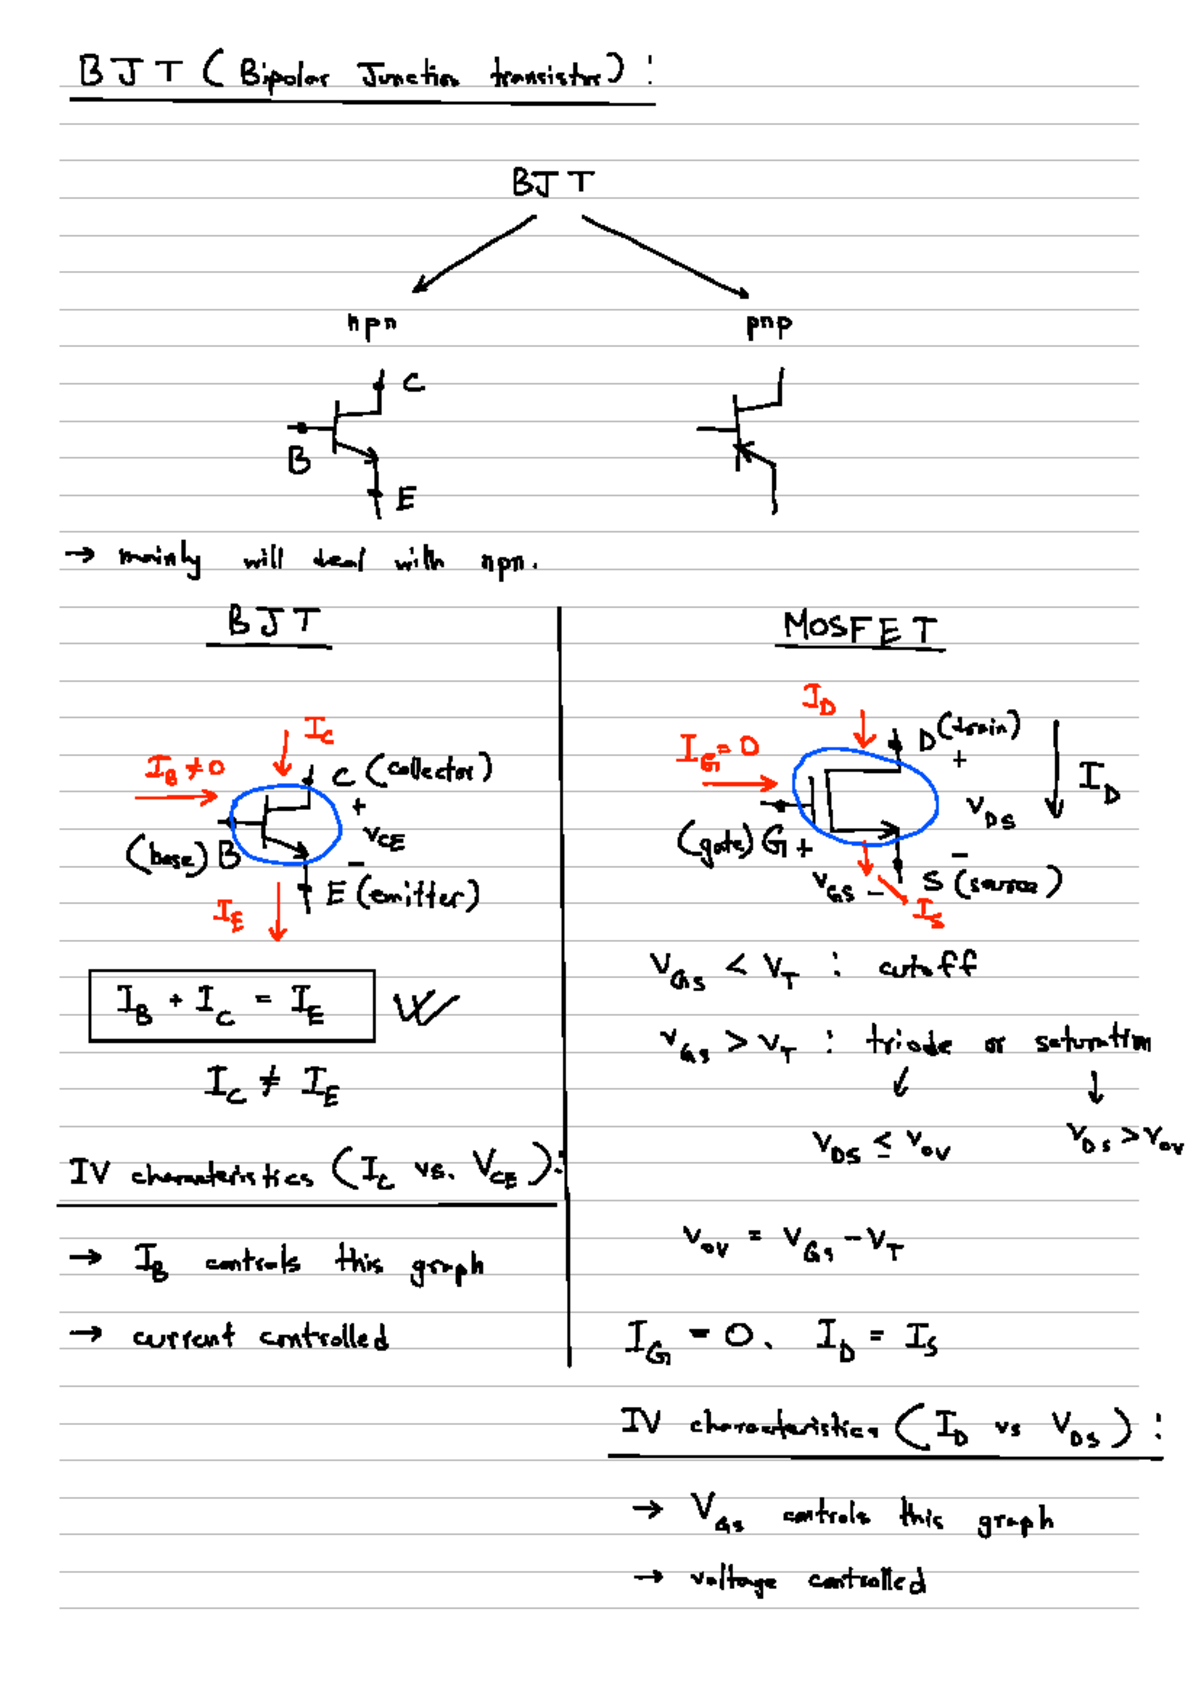 BJT (Bipolar Junction transistor) :
BJT
npn
pnp
C
B
E
→ mainly will deal with npn.
BJT
I_C
I_B ≠ 0
C (collector)
+
V_CE
(base) B
−
E (emitter)
I_E
I_B + I_C = I_E
I_C ≠ I_E
IV characteristics (I_C vs. V_CE) :
→ I_B controls this graph
→ current controlled
MOSFET
I_D
D (drain)
I_G = 0
+
I_D
V_DS
(gate) G +
−
V_GS −
S (source)
I_S
V_GS < V_T : cutoff
V_GS > V_T : triode or saturation
V_DS ≤ V_OV
V_DS > V_OV
V_OV = V_GS − V_T
I_G = 0, I_D = I_S
IV characteristics (I_D vs V_DS) :
→ V_GS controls this graph
→ voltage controlled